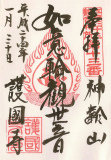 奉拝
神齢山
如意輪観世音
護國寺
平成二十四年